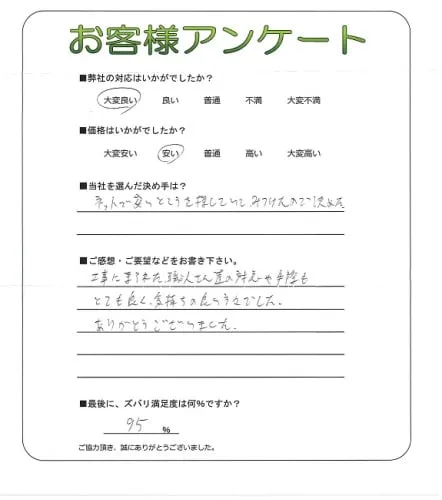 お客様アンケート
■弊社の対応はいかがでしたか?
大変良い 良い 普通 不満 大変不満
■価格はいかがでしたか?
大変安い 安い 普通 高い 大変高い
■当社を選んだ決め手は?
ネットで安いところを探していて、みつけたので決めた
■ご感想・ご要望などをお書き下さい。
工事に来られた、職人さん達の対応や手際も
とても良く、気持ちの良い方々でした。
ありがとうございました。
■最後に、ズバリ満足度は何%ですか?
95 %
ご協力頂き、誠にありがとうございました。